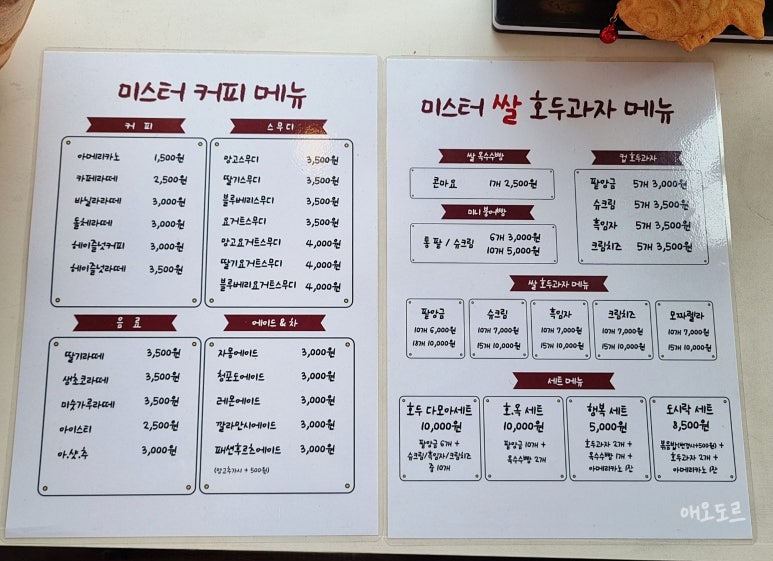 미스터 커피 메뉴
커 피
아메리카노 1,500원
카페라떼 2,500원
바닐라라떼 3,000원
돌체라떼 3,000원
헤이즐넛커피 3,000원
헤이즐넛라떼 3,500원
스무디
망고스무디 3,500원
딸기스무디 3,500원
블루베리스무디 3,500원
요거트스무디 3,500원
망고요거트스무디 4,000원
딸기요거트스무디 4,000원
블루베리요거트스무디 4,000원
음 료
딸기라떼 3,500원
생초코라떼 3,500원
미숫가루라떼 3,500원
아이스티 2,500원
아.샷.추 3,000원
에이드 & 차
자몽에이드 3,000원
청포도에이드 3,000원
레몬에이드 3,000원
깔라만시에이드 3,000원
패션후르츠에이드 3,000원
(망고추가시 + 500원)
미스터 쌀 호두과자 메뉴
쌀 옥수수빵
콘마요 1개 2,500원
미니 붕어빵
통 팥 / 슈크림 6개 3,000원
10개 5,000원
컵 호두과자
팥앙금 5개 3,000원
슈크림 5개 3,500원
흑임자 5개 3,500원
크림치즈 5개 3,500원
쌀 호두과자 메뉴
팥앙금
10개 6,000원
18개 10,000원
슈크림
10개 7,000원
15개 10,000원
흑임자
10개 7,000원
15개 10,000원
크림치즈
10개 7,000원
15개 10,000원
모짜렐라
10개 7,000원
15개 10,000원
세트 메뉴
호두 다모아세트
10,000원
팥앙금 6개 +
슈크림/흑임자/크림치즈
중 10개
호.옥 세트
10,000원
팥앙금 10개 +
옥수수빵 2개
행복 세트
5,000원
호두과자 2개 +
옥수수빵 1개 +
아메리카노 1잔
도시락 세트
8,500원
볶음밥(변경시+500원) +
호두과자 2개 +
아메리카노 1잔
애오도르